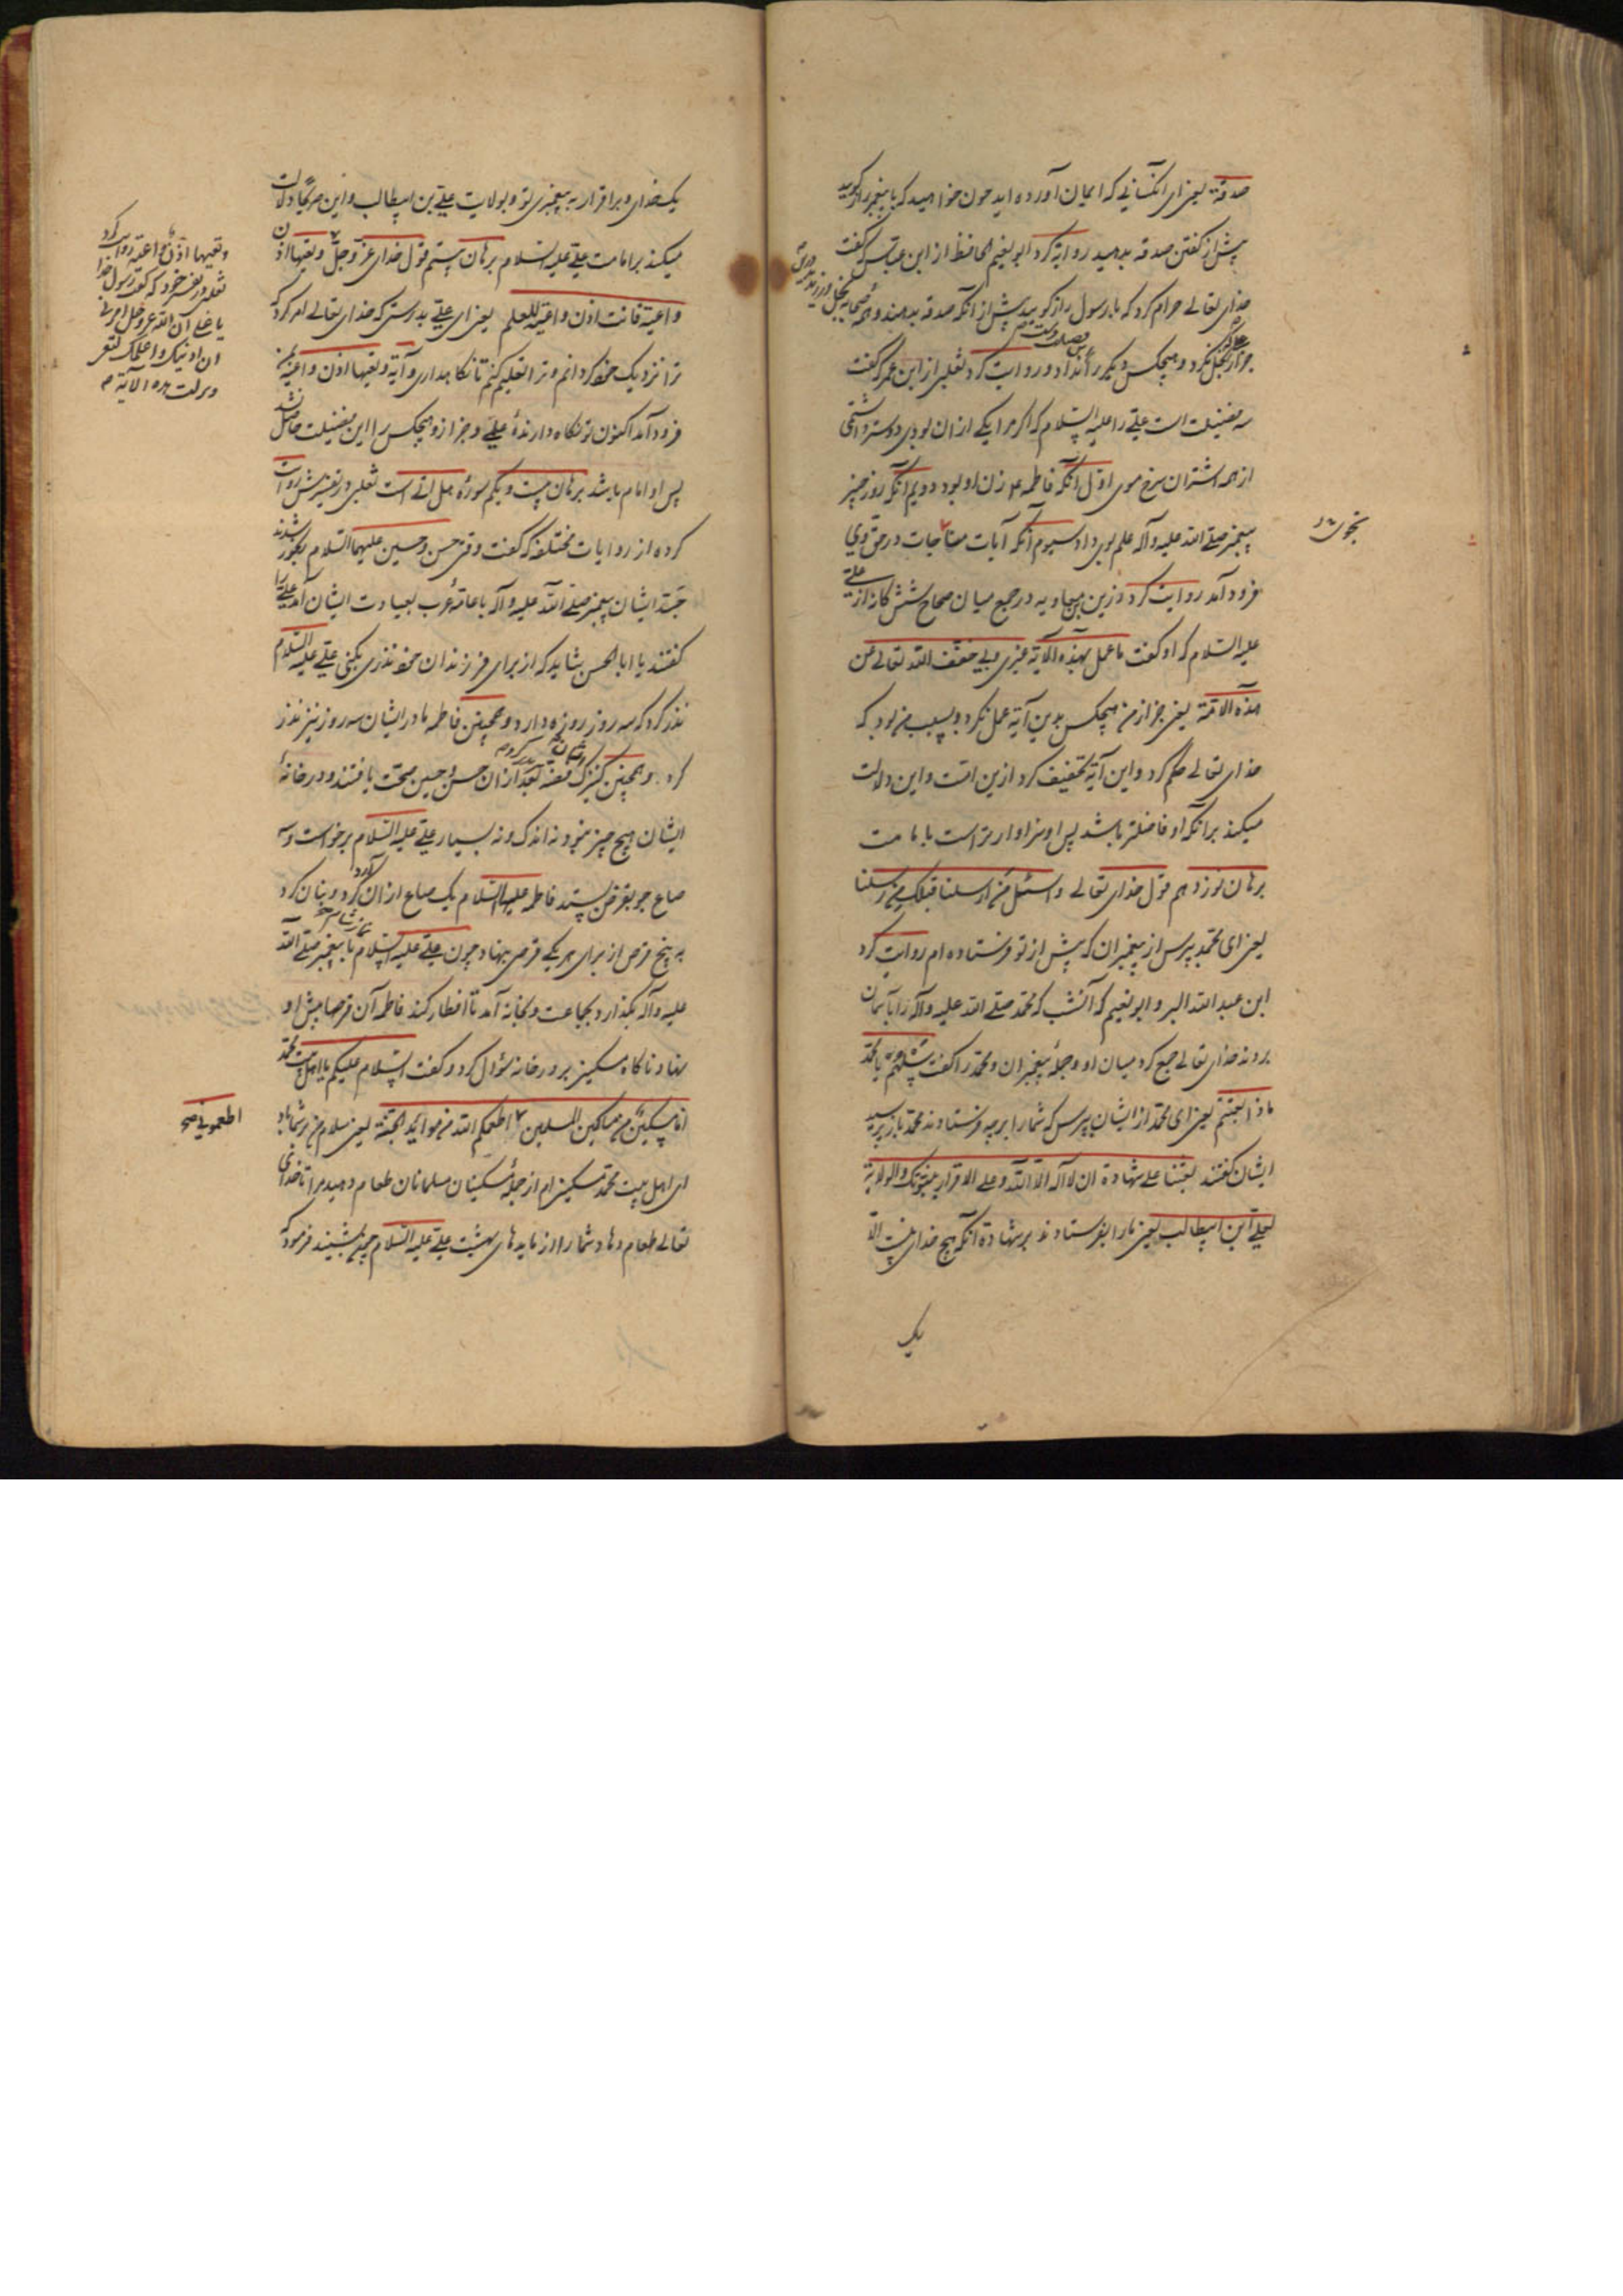 صدقة یعنی ای انکسانی که ایمان آورده اید چون خواهید که با پیغمبر راز کویید
پیش از کفتن صدقه بدهید روایة کرد ابو نعیم الحافظ از ابن عباس کفت
خدای تعالی حرام کرد که با رسول راز کویید پیش از آنکه صدقه بدهند و
جز از بخل نکرد و هیچکس دیکر و روایت کرد ثعلبی از ابن عمر کفت
سه فضیلت است علی را علیه السلام که اکر مرا یکی از ان بودی دوستر داشتمی
از همه اشتران سرخ موی اول آنکه فاطمه زن او بود دویم آنکه روز خیبر
پیغمبر صلی الله علیه وآله علم بوی داد سیوم آنکه آیات مناجات در حق وی
نجوی
فرود آمد روایت کرد رزین بن معاویه در جمع میان صحاح شش کانه از علی
علیه السلام که او کفت ما عمل بهذه الآیة غیری وبی خفف الله تعالی عن
هذه الامة یعنی جز از من هیچکس بدین آیة عمل نکرد و بسبب من بود که
خدای تعالی حکم کرد و این آیة تخفیف کرد ازین امت و این دلالت
میکند برانکه او فاضلتر باشد پس او سزاوارتر است بامامت
برهان نوزدهم قول خدای تعالی واسئل من ارسلنا قبلک من رسلنا
یعنی ای محمد بپرس از پیغمبران که پیش از تو فرستاده ام روایت کرد
ابن عبد الله البر و ابو نعیم که آنشب که محمد صلی الله علیه وآله را بآسمان
بردند خدای تعالی جمع کرد میان او و جملهٔ پیغمبران و محمد را کفت سلهم یا محمد
ماذا بعثتم یعنی ای محمد از ایشان بپرس که شما را بر چه فرستادند محمد باز پرسید
ایشان کفتند بعثنا علی شهادة ان لا اله الا الله وعلی الاقرار بنبوتک والولایة
لعلی ابن ابیطالب یعنی ما را بفرستادند بر شهادة آنکه هیچ خدای نیست الا
یک
یک خدای و بر اقرار به پیغمبری تو و بولایت علی بن ابیطالب و این صریحا دلالت
میکند بر امامت علی علیه السلام برهان بیستم قول خدای عز وجل وتعیها اذن
واعیة فانت اذن واعیة للعلم یعنی ای علی بدرستی که خدای تعالی امر کرد که
ترا نزدیک خود کردانم و ترا تعلیم کنم تا نکاه داری و آیة وتعیها اذن واعیة
فرود آمد اکنون تو نکاه دارندهٔ علمی و جز از و هیچکس را این فضیلت حاصل نشد
پس او امام باشد برهان بیست و یکم سورهٔ هل اتی است ثعلبی در تفسیرش روایت
کرده از روایات مختلفه که کفت وقتی حسن و حسین علیهما السلام رنجور شدند
جد ایشان پیغمبر صلی الله علیه وآله با عامهٔ عرب بعیادت ایشان آمد علی را
کفتند یا ابا الحسن شاید که از برای فرزندان خود نذری بکنی علی علیه السلام
نذر کرد که سه روز روزه دارد و همچنین فاطمه مادر ایشان سه روز نیز نذر
کرد و همچنین کنیزک فضه بعد از ان حسن و حسین صحت یافتند و در خانهٔ
ایشان هیچ چیز نبود نه اندک و نه بسیار علی علیه السلام برخواست و سه
صاع جو بقرض بستد فاطمه علیها السلام یک صاع از ان آرد کرد و بنان کرد
به پنج قرص از برای هر یکی قرصی بنهاد چون علی علیه السلام نماز شام با پیغمبر صلی الله
علیه وآله بکذارد بجماعت و بخانه آمد تا افطار کند فاطمه آن قرصها پیش او
بنهاد ناکاه مسکینی بر در خانه سؤال کرد و کفت السلام علیکم یا اهل بیت محمد
انا مسکین من مساکین المسلمین اطعمکم الله من موائد الجنة یعنی سلام من بر شما باد
اطعمونی صح
ای اهل بیت محمد مسکینم از جملهٔ مسکینان مسلمانان طعام دهید مرا تا خدای
تعالی طعام دهاد شما را از مایدهای بهشت علی علیه السلام چون بشنید فرمود که
وتعیها اذن واعیة روایت کرد
ثعلبی در تفسیر خود که کفت رسول خدا
یا علی ان الله عز وجل امرنی
ان ادنیک واعلمک لتعی
ونزلت هذه الآیة